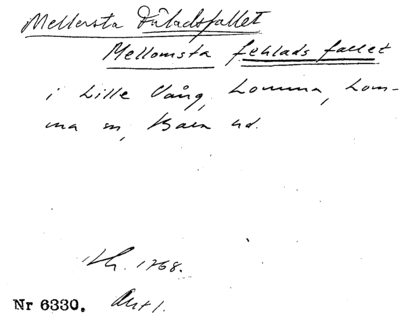 Mellersta Dubadsfallet
Mellomsta fehlads fallet
i Lille Vång, Lomma, Lom-
ma sn, Bara hd.
1768.
Nr 6330.